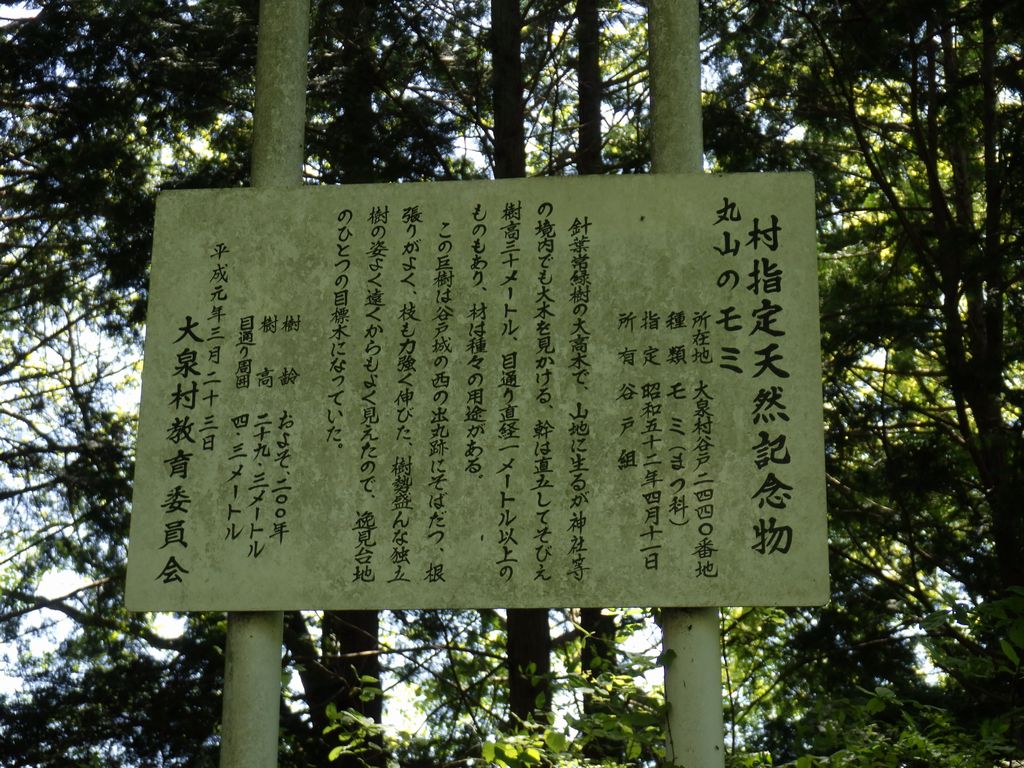 村指定天然記念物
丸山のモミ
所在地 大泉村谷戸二四四〇番地
種類 モミ(まつ科)
指定 昭和五十二年四月十一日
所有 谷戸組
針葉常緑樹の大高木で、山地に生るが神社等
の境内でも大木を見かける、幹は直立してそびえ
樹高三十メートル、目通り直経一メートル以上の
ものもあり、材は種々の用途がある。
この巨樹は谷戸城の西の出丸跡にそばだつ、根
張りがよく、枝も力強く伸びた、樹勢盛んな独立
樹の姿よく遠くからもよく見えたので、逸見台地
のひとつの目標木になっていた。
樹齢 およそ二〇〇年
樹高 二十九・三メートル
目通り周囲 四・三メートル
平成元年三月二十三日
大泉村教育委員会